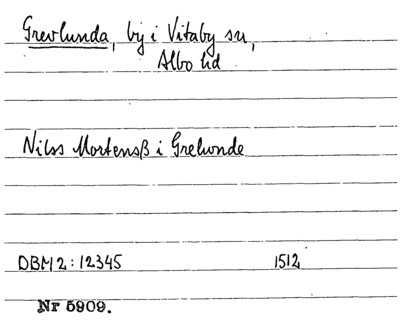 Grevlunda, by i Vitaby sn,
Albo hd
Nilss Mortensß i Grelunde
DBM 2:12345 1512
Nr 5909.